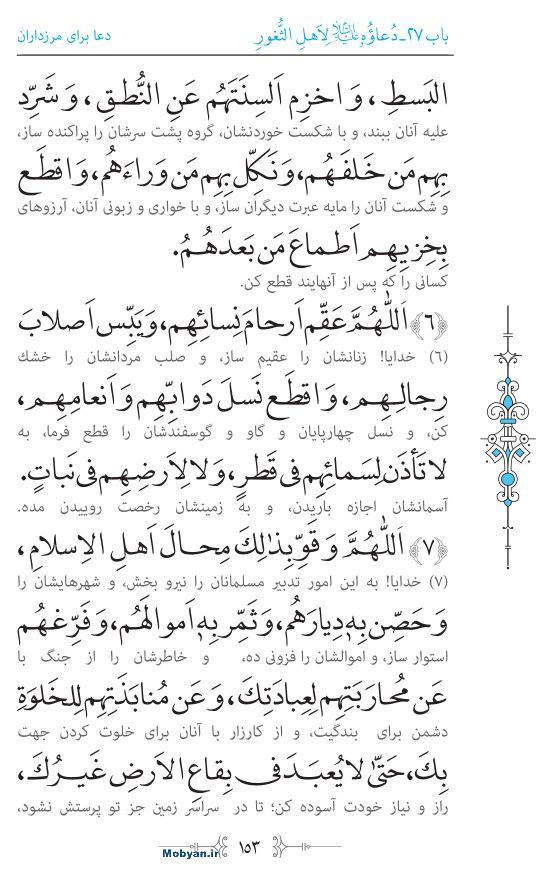 باب ۲۷ـ دُعاؤُهُ علیه‌السلام لِاَهلِ الثُّغورِ
دعا برای مرزداران
البَسطِ، وَ اخزِم اَلسِنَتَهُم عَنِ النُّطقِ، وَ شَرِّد
علیه آنان ببند، و با شکست خوردنشان، گروه پشت سرشان را پراکنده ساز،
بِهِم مَن خَلفَهُم، وَ نَکِّل بِهِم مَن وَراءَهُم، وَ اقطَع
و شکست آنان را مایه عبرت دیگران ساز، و با خواری و زبونی آنان، آرزوهای
بِخِزیِهِم اَطماعَ مَن بَعدَهُم.
کسانی را که پس از آنهایند قطع کن.
﴿۶﴾ اَللّٰهُمَّ عَقِّم اَرحامَ نِسائِهِم، وَ یَبِّس اَصلابَ
(۶) خدایا! زنانشان را عقیم ساز، و صلب مردانشان را خشك
رِجالِهِم، وَ اقطَع نَسلَ دَوابِّهِم وَ اَنعامِهِم،
کن، و نسل چهارپایان و گاو و گوسفندشان را قطع فرما، به
لا تَأذَن لِسَمائِهِم فی قَطرٍ، وَ لا لِاَرضِهِم فی نَباتٍ.
آسمانشان اجازه باریدن، و به زمینشان رخصت روییدن مده.
﴿۷﴾ اَللّٰهُمَّ وَ قَوِّ بِذٰلِكَ مِحالَ اَهلِ الاِسلامِ،
(۷) خدایا! به این امور تدبیر مسلمانان را نیرو بخش، و شهرهایشان را
وَ حَصِّن بِهٖ دِیارَهُم، وَ ثَمِّر بِهٖ اَموالَهُم، وَ فَرِّغهُم
استوار ساز، و اموالشان را فزونی ده، و خاطرشان را از جنگ با
عَن مُحارَبَتِهِم لِعِبادَتِكَ، وَ عَن مُنابَذَتِهِم لِلخَلوَةِ
دشمن برای بندگیت، و از کارزار با آنان برای خلوت کردن جهت
بِكَ، حَتّیٰ لا یُعبَدَ فی بِقاعِ الاَرضِ غَیرُكَ،
راز و نیاز خودت آسوده کن؛ تا در سراسر زمین جز تو پرستش نشود،
۱۵۳
Mobyan.ir